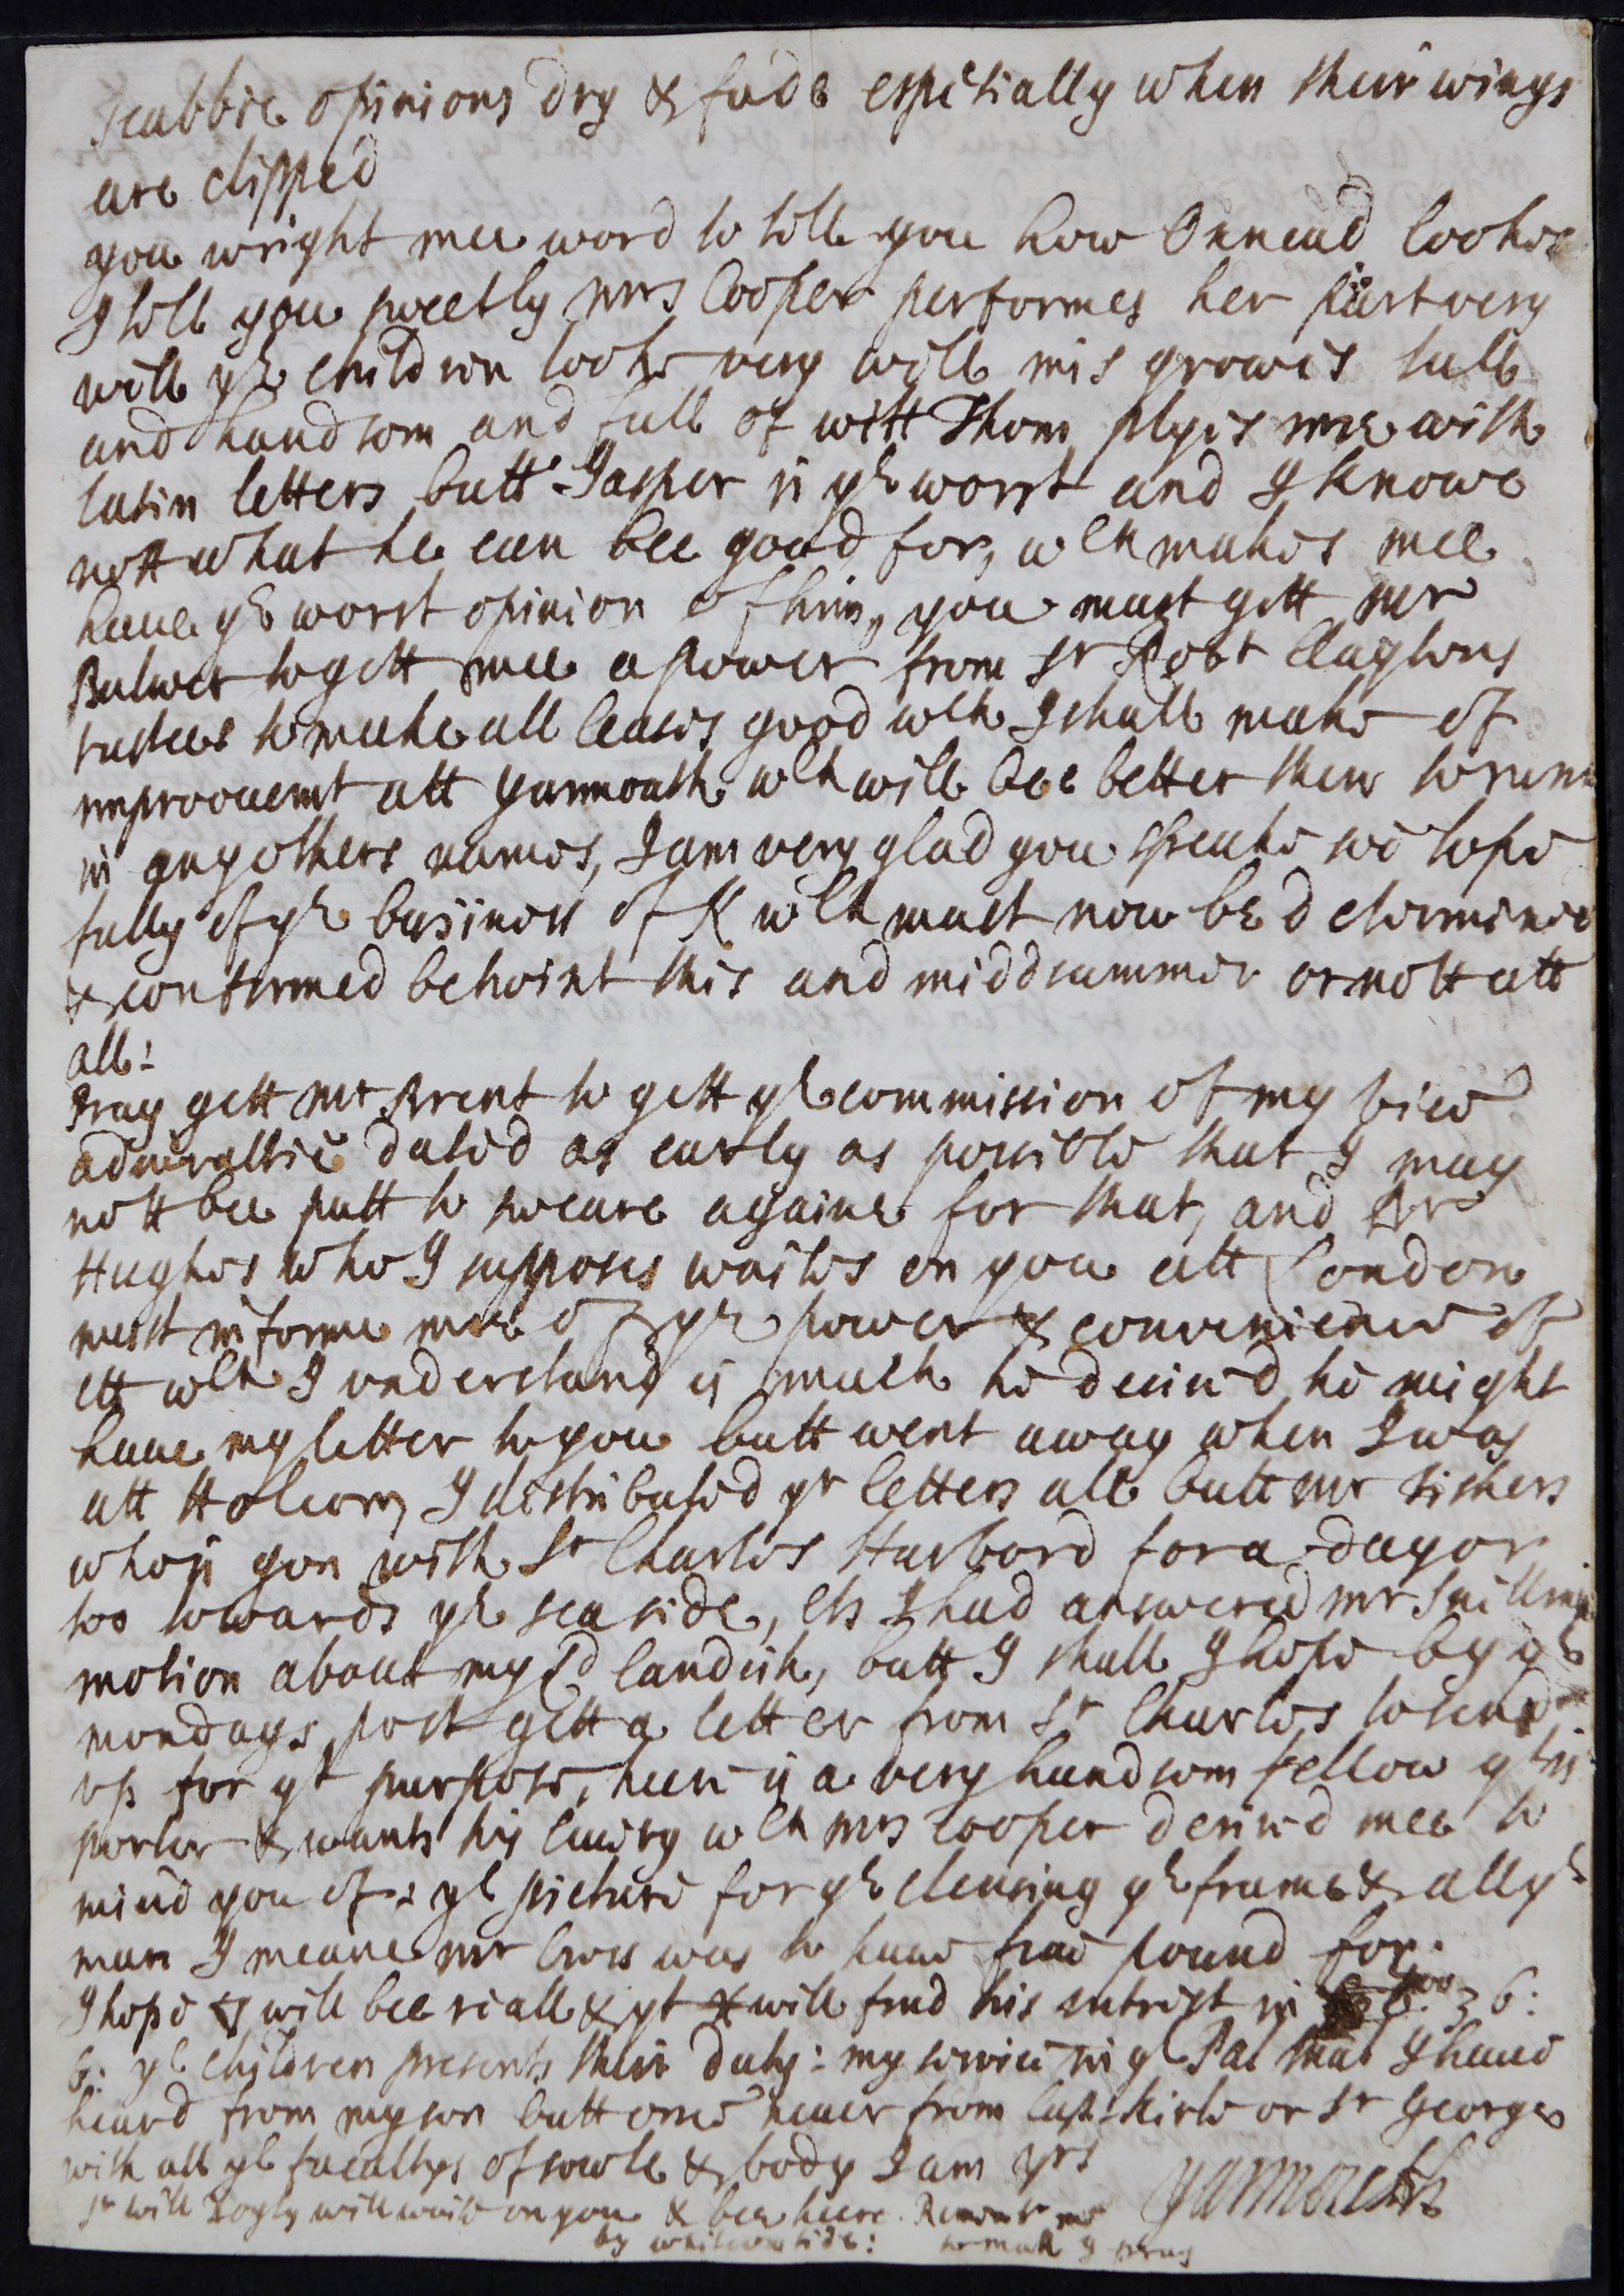 scabbie opinions dry & fade espetially when their wings
are clipped
you wright mee word to tell you how Oxnead lookes
I tell you sweetly mrs Cooper performes her part very
well ye children looke very well mis growes tall
and handsom and full of witt Thom plyes mee with
latin letters butt Jasper is ye worst and I knowe
nott what he can bee good for, wch makes mee
haue ye worst opinion of him, you must gett mr
Bulwer to gett mee a power from Sr Robt Claytons
trustees to make all leases good wch I shall make of
improouemt att yarmouth wch will bee better then to runn
in any others names, I am very glad you speake soe hope
fully of ye busines of K wch must now be determined
& confirmed betwixt this and middsummer or nott att
all:
Pray gett mr Brent to gett ye commission of my vice
admiraltie dated as early as possible that I may
nott bee putt to sweare againe for that, and
Hughes who I supposes waites on you att London
must informe mee of ye power & convenience of
itt wch I understand is much he desired he might
haue my letter to you butt went away when I was
att Holcom, I destributed yr letters all butt mr
who is gon with Sr Charles Harbord for a day or
too towards ye sea side, els I had answered mr
motion about my Ld Landish, butt I shall I hope by ye
mondays post gett a letter from Sr Charles to send
up for yt purpose, heer is a very handsom fellow yt is
porter & wants his liuery wch mrs Cooper desired mee to
mind you of: ye picture for ye clensing ye frame & all ye
man I meane mr Cross was to haue fiue pound for.
I hope will bee reall & yt will find his intrest in 36:
6: ye children presents their duty: my seruice in ye Pal Mal I haue
heard from my son butt once neuer from Capt: Kirke or Sr George
with all ye facultys of sowle & body I am yrs
Sr will will waite on you & bee heere. Yarmouth
by whitsontide: to